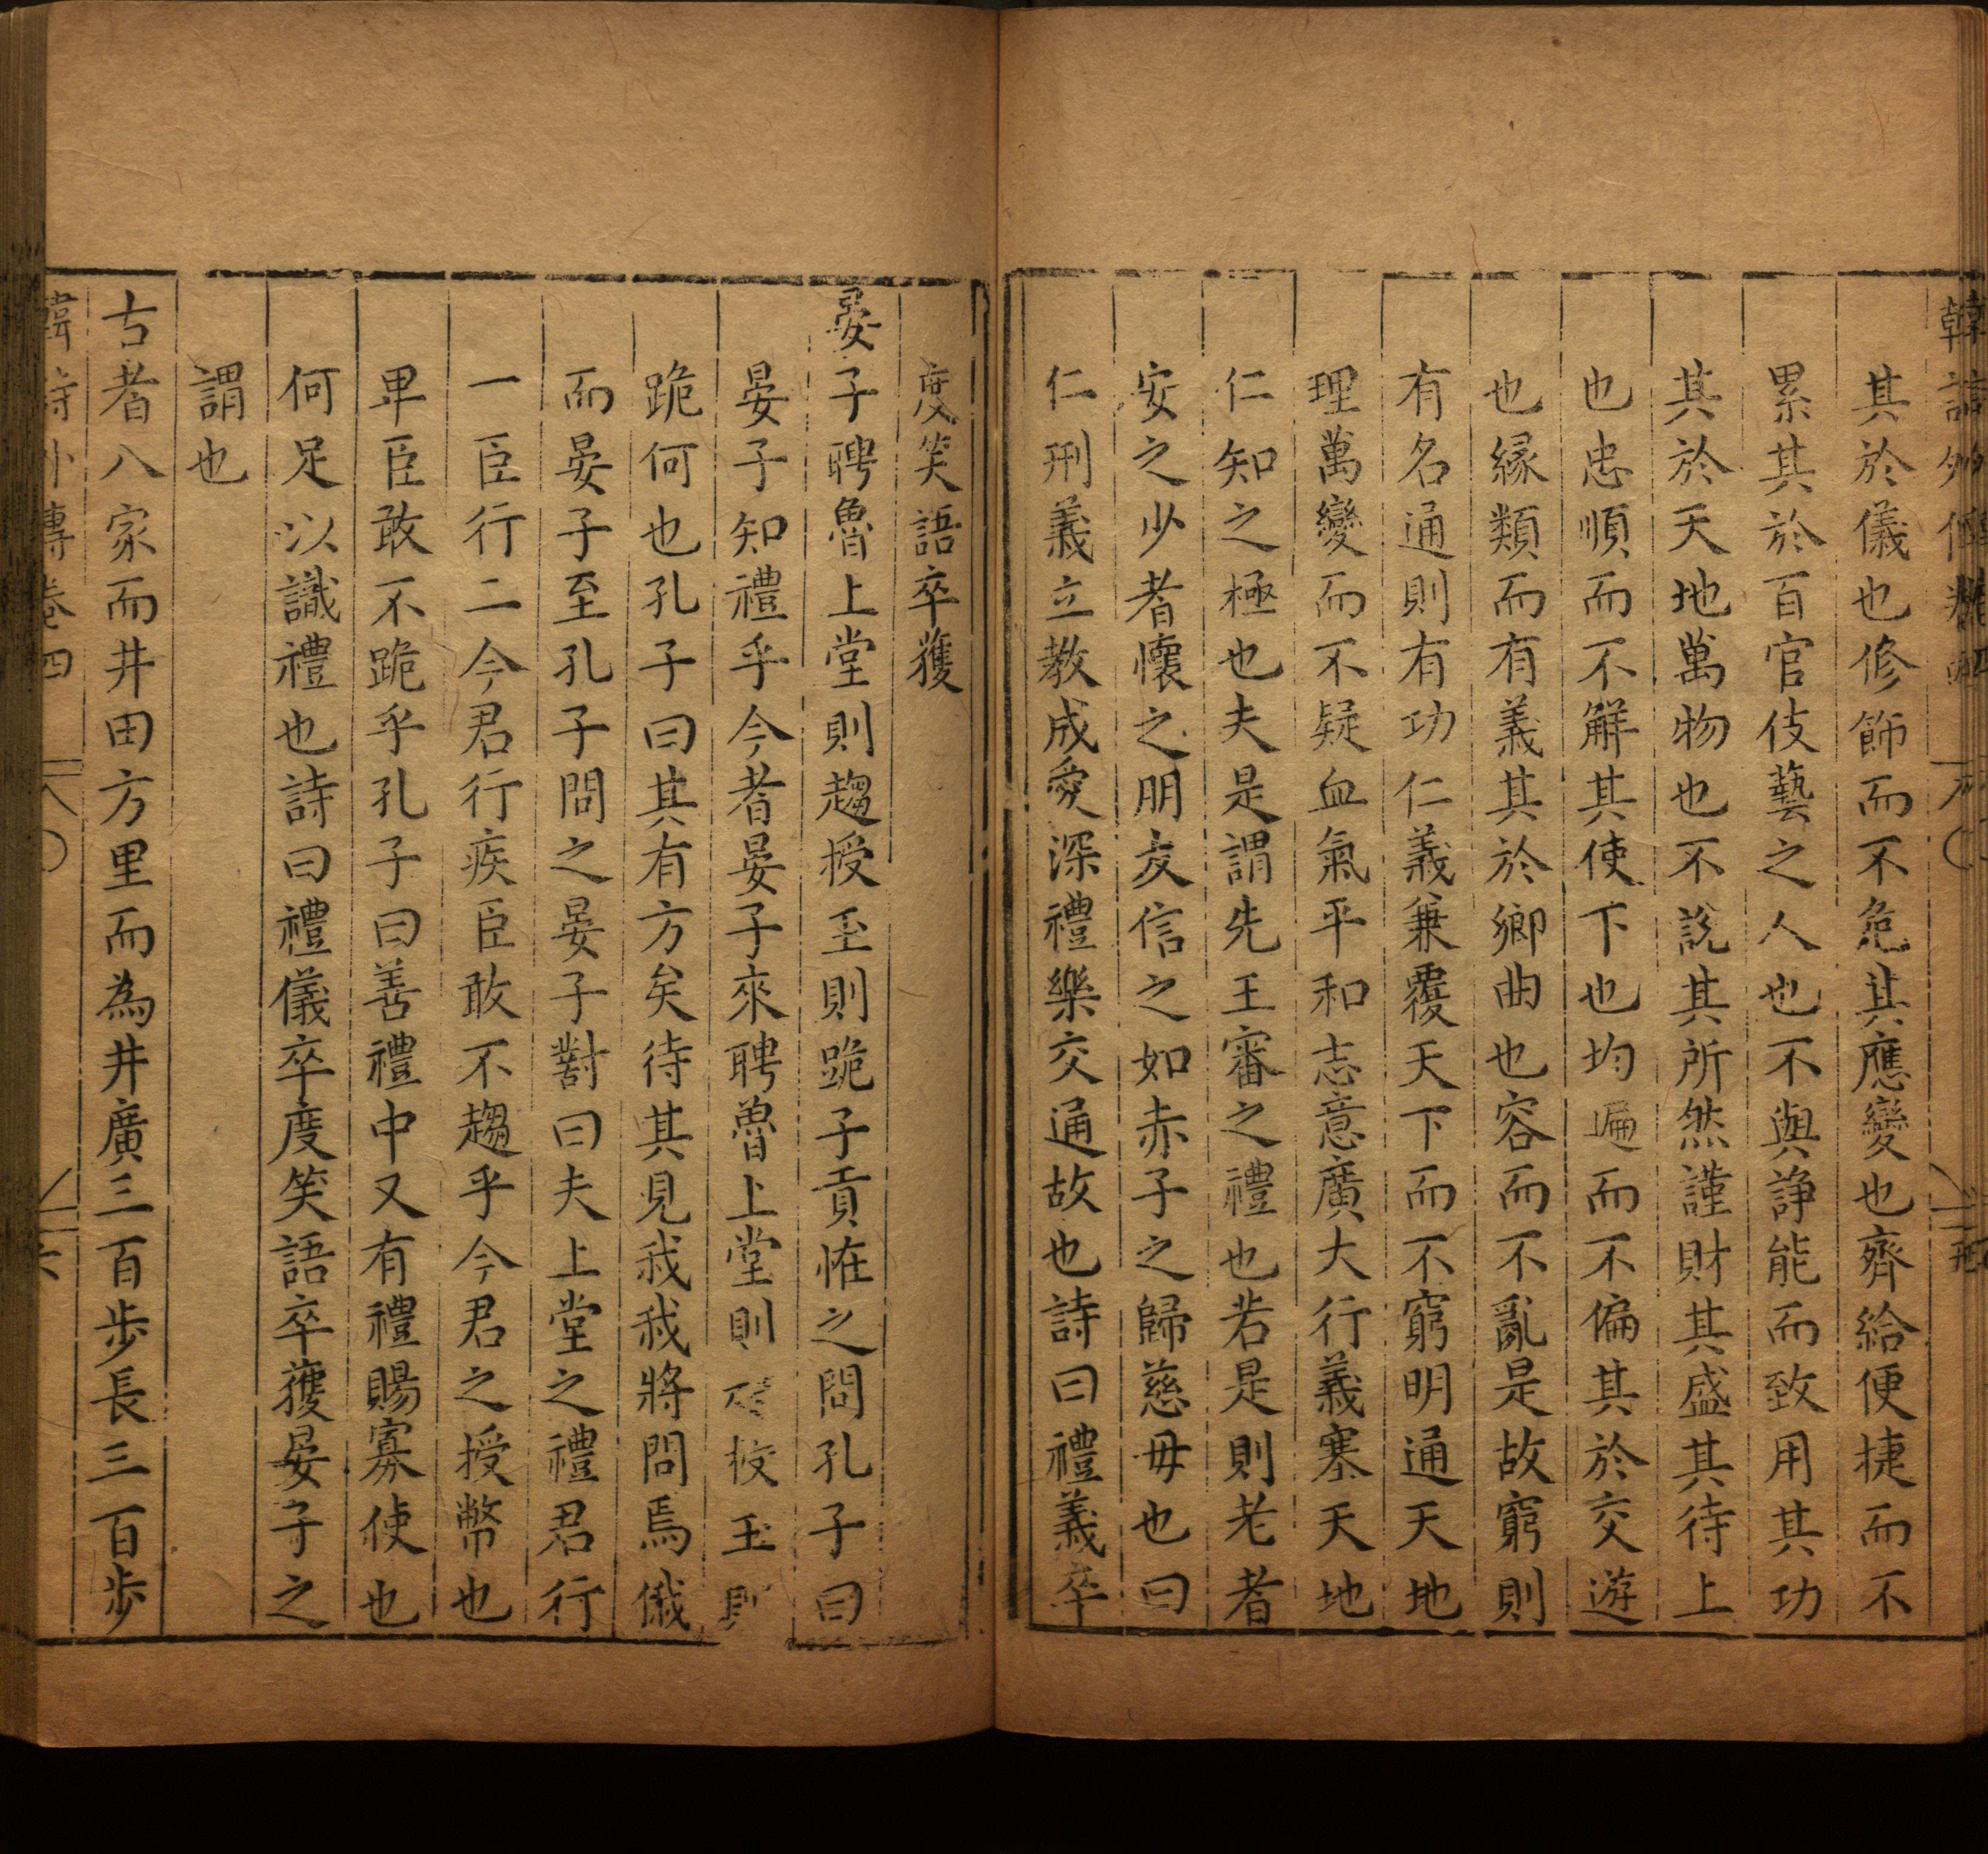 其於儀也修飾而不危其應變也齊給便捷而不
累其於百官伎藝之人也不與諍能而致用其功
其於天地萬物也不說其所然謹財其盛其待上
也忠順而不解其使下也均遍而不偏其於交遊
也緣類而有義其於鄉曲也容而不亂是故窮則
有名通則有功仁義兼覆天下而不窮明通天地
理萬變而不疑血氣平和志意廣大行義塞天地
仁知之極也夫是謂先王審之禮也若是則老者
安之少者懷之朋友信之如赤子之歸慈母也曰
仁刑義立教成愛深禮樂交通故也詩曰禮義卒
度笑語卒獲
晏子聘魯上堂則趨授玉則跪子貢恠之問孔子曰
晏子知禮乎今者晏子來聘魯上堂則授玉則
跪何也孔子曰其有方矣待其見我我將問焉儀
而晏子至孔子問之晏子對曰夫上堂之禮君行
一臣行二今君行疾臣敢不趨乎今君之授幣也
卑臣敢不跪乎孔子曰善禮中又有禮賜寡使也
何足以識禮也詩曰禮儀卒度笑語卒獲晏子之
謂也
古者八家而井田方里而為井廣三百步長三百步
韓詩外傳卷四